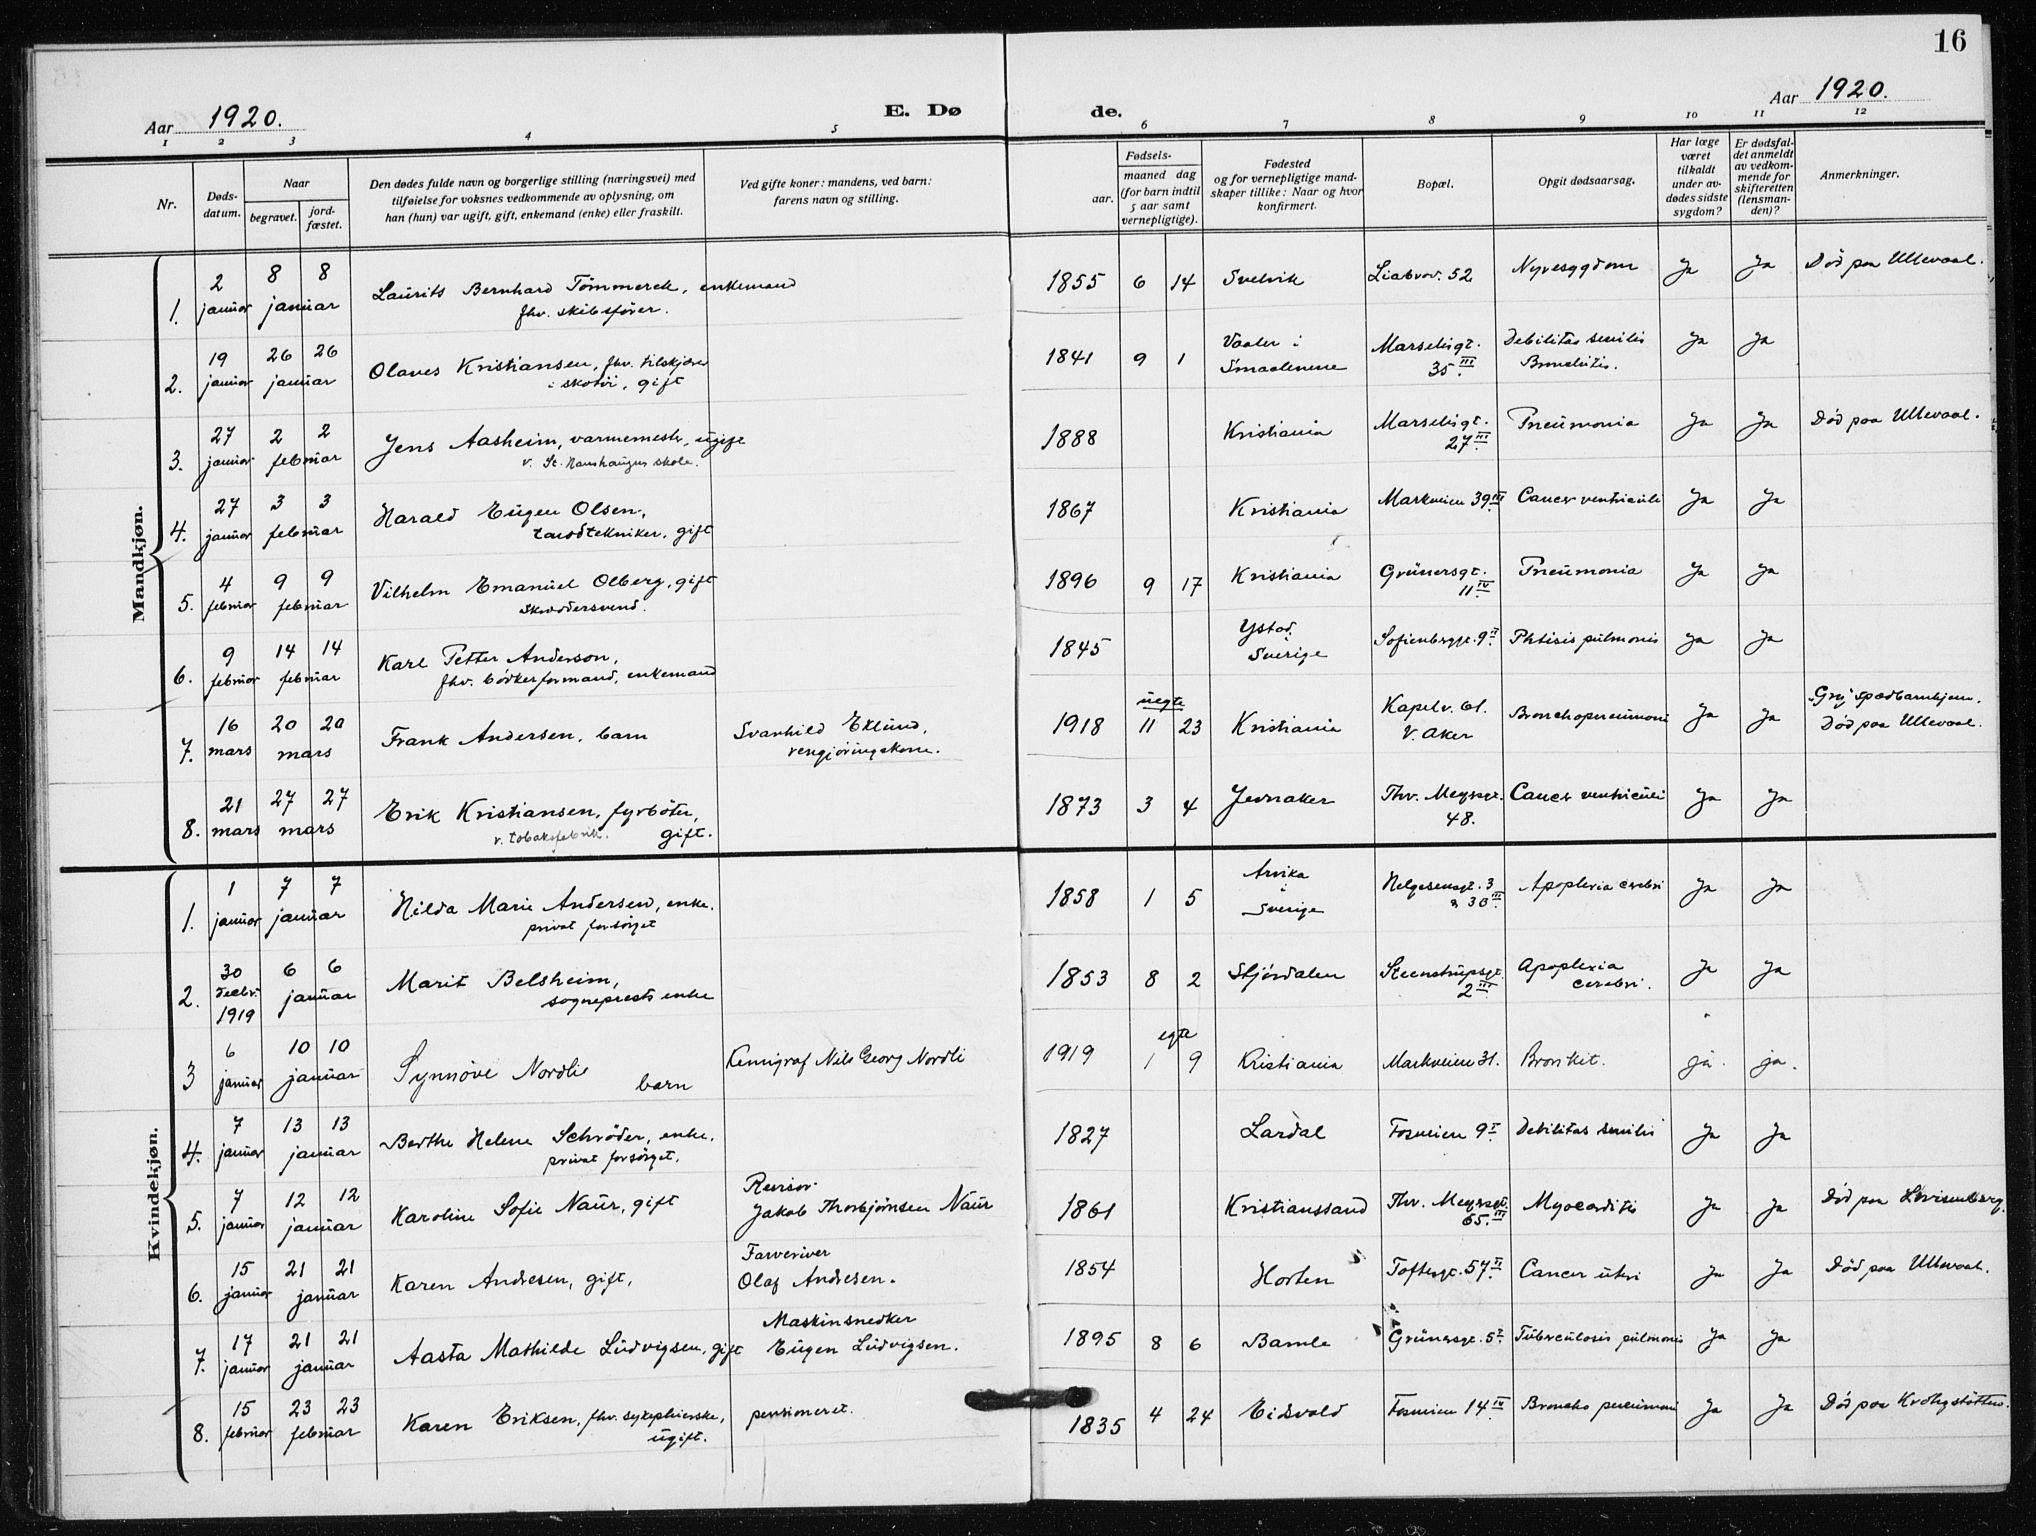 16
Aar 1920. E. Døde. Aar 1920.
1 2 3 4 5 6 7 8 9 10 11 12
Nr.
Døds-
datum.
Naar
begravet.
jord-
fæstet.
Den dødes fulde navn og borgerlige stilling (næringsvei) med
tilføielse for voksnes vedkommende av oplysning, om
han (hun) var ugift, gift, enkemand (enke) eller fraskilt.
Ved gifte koner: mandens, ved barn:
farens navn og stilling.
aar.
Fødsels-
maaned dag
(for barn indtil
5 aar samt
vernepligtige).
Fødested
og for vernepligtige mand-
skaper tillike: Naar og hvor
konfirmert.
Bopæl.
Opgit dødsaarsag.
Har læge
været
tilkaldt
under av-
dødes sidste
sygdom?
Er dødsfal-
det anmeldt
av vedkom-
mende for
skifteretten
(lensman-
den)?
Anmerkninger.
Mandkjøn.
1. 2 januar 8 8 januar Laurits Bernhard Tömmerek, enkemand
fhv. skibsfører.
1855 6 14 Svelvik Liabrov. 52 Nyresygdom Ja Ja Død paa Ullevaal.
2. 19 januar 26 26 januar Olaves Kristiansen, fhv. tilskjærer
i skotöi, gift
1841 9 1 Vaaler i Smaalenene Marselisgt. 35 III. Debilitas senilis Bronchitis. Ja Ja
3. 27 januar 2 2 februar Jens Aasheim, varmemestr., ugift
v. St. Hanshaugens skole.
1888 Kristiania Marselisgt. 27 III Pneumonia Ja Ja Död paa Ullevaal.
4. 27 januar 3 3 februar Harald Eugen Olsen,
tandtekniker, gift
1867 Kristiania Markveien 39 III Cancer ventriculi Ja Ja
5. 4 februar 9 9 februar Vilhelm Emanuel Olberg, gift
Skræddersvend.
1896 9 17 Kristiania Grünersgt. 11 IV Pneumonia Ja Ja
6. 9 februar 14 14 februar Karl Petter Anderson,
fhv. bödkerformand, enkemand
1845 Ystad, Sverige Sofienbergt. 9 II Phtisis pulmonis Ja Ja
7. 16 mars 20 20 mars Frank Andersen, barn Svanhild Eklund,
rengjöringskone.
1918 uegte 11 23 Kristiania Kapelv. 61. V. Aker Bronchopneumoni Ja Ja "Gry" spædbarnhjem.
Död paa Ullevaal.
8. 21 mars 27 27 mars Erik Kristiansen, fyrböter,
v. tobaksfabrik. gift.
1873 3 4 Jevnaker Thv. Meyersgt. 48. Cancer ventriculi Ja Ja
Kvindekjøn.
1. 1 januar 7 7 januar Hilda Marie Andersen, enke.
privat forsörget
1858 1 5 Arvika i Sverige Helgesensgt. 30 III. Apoplexia cerebri Ja Ja
2. 30 decbr. 1919 6 6 januar Marit Belsheim,
sogneprests enke
1853 8 2 Stjördalen Steenstrupsgt. 2 III Apoplexia cerebri. Ja Ja
3 6 januar 10 10 januar Synnöve Nordli barn Kemigraf Nils Georg Nordli
1919 egte 1 9 Kristiania Markveien 31. Bronkit. ja. ja.
4. 7 januar 13 13 januar Berthe Helene Schröder, enke.
privat forsörget.
1827 Lardal Fosveien 9 I Debilitas senilis Ja Ja
5. 7 januar 12 12 januar Karoline Sofie Naur, gift Revisor
Jakob Thorbjørnsen Naur
1861 Kristianssand Thv. Meyersgt. 65. III Myocarditis Ja Ja Död paa Lovisenberg.
6. 15 januar 21 21 januar Karen Andresen, gift, Farveriver
Olaf Andresen.
1854 Horten Toftesgt. 57 II Cancer uteri Ja Ja Död paa Ullevaal.
7. 17 januar 21 21 januar Aasta Mathilde Ludvigsen, gift Maskinsnedker
Eugen Ludvigsen.
1895 8 6 Bamle Grünersgt. 5 I Tuberculosis pulmonis Ja Ja
8. 15 februar 23 23 februar Karen Eriksen, fhv. sykepleierske, pensioneret.
ugift.
1835 4 24 Eidsvold Fosveien 14 IV Broncho pneumoni Ja Ja Död paa Krohgstötten.